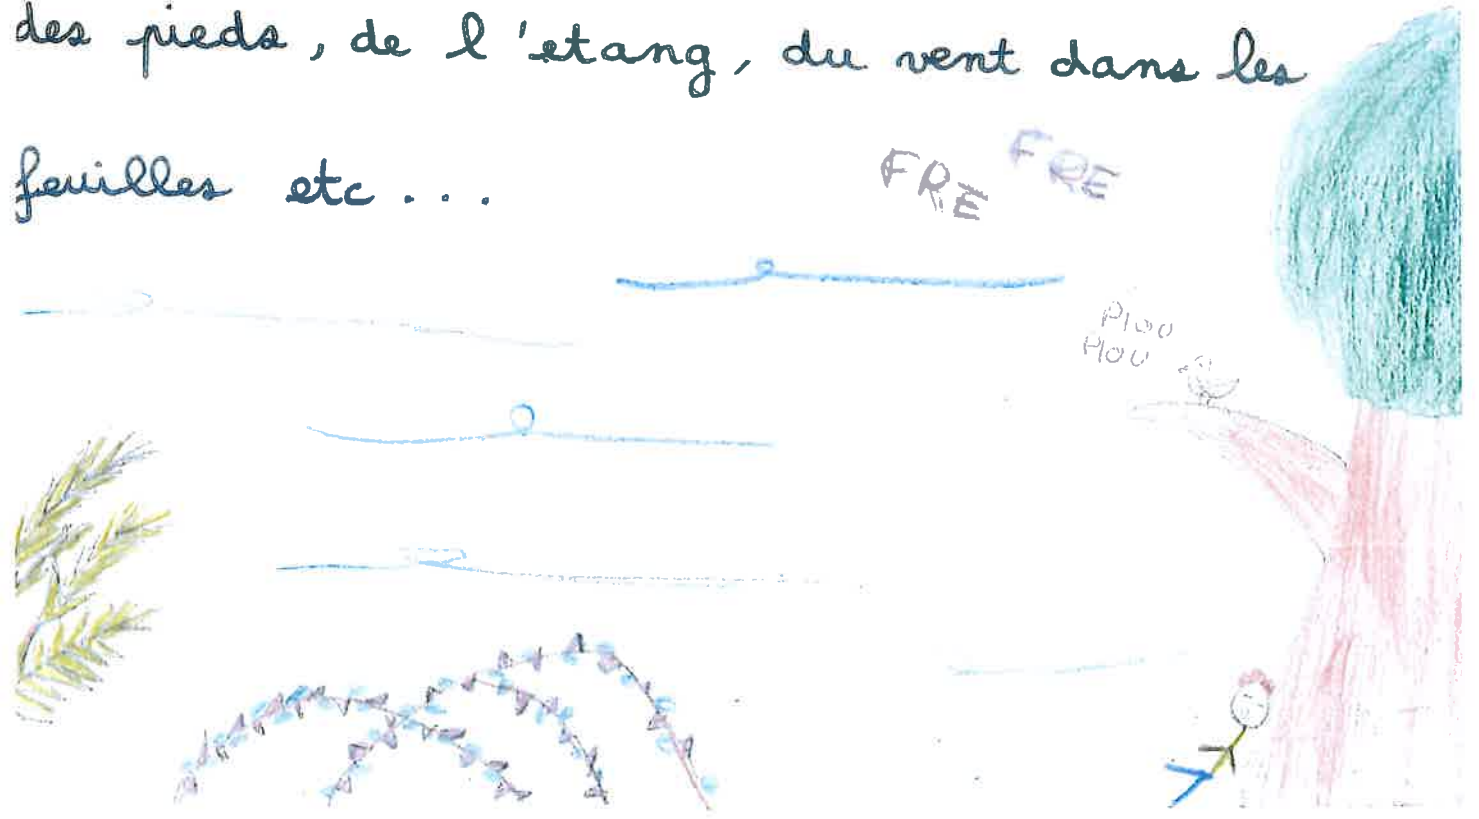 des pieds, de l'etang, du vent dans les
feuilles etc...
FRE FRE
PIOU
PIOU